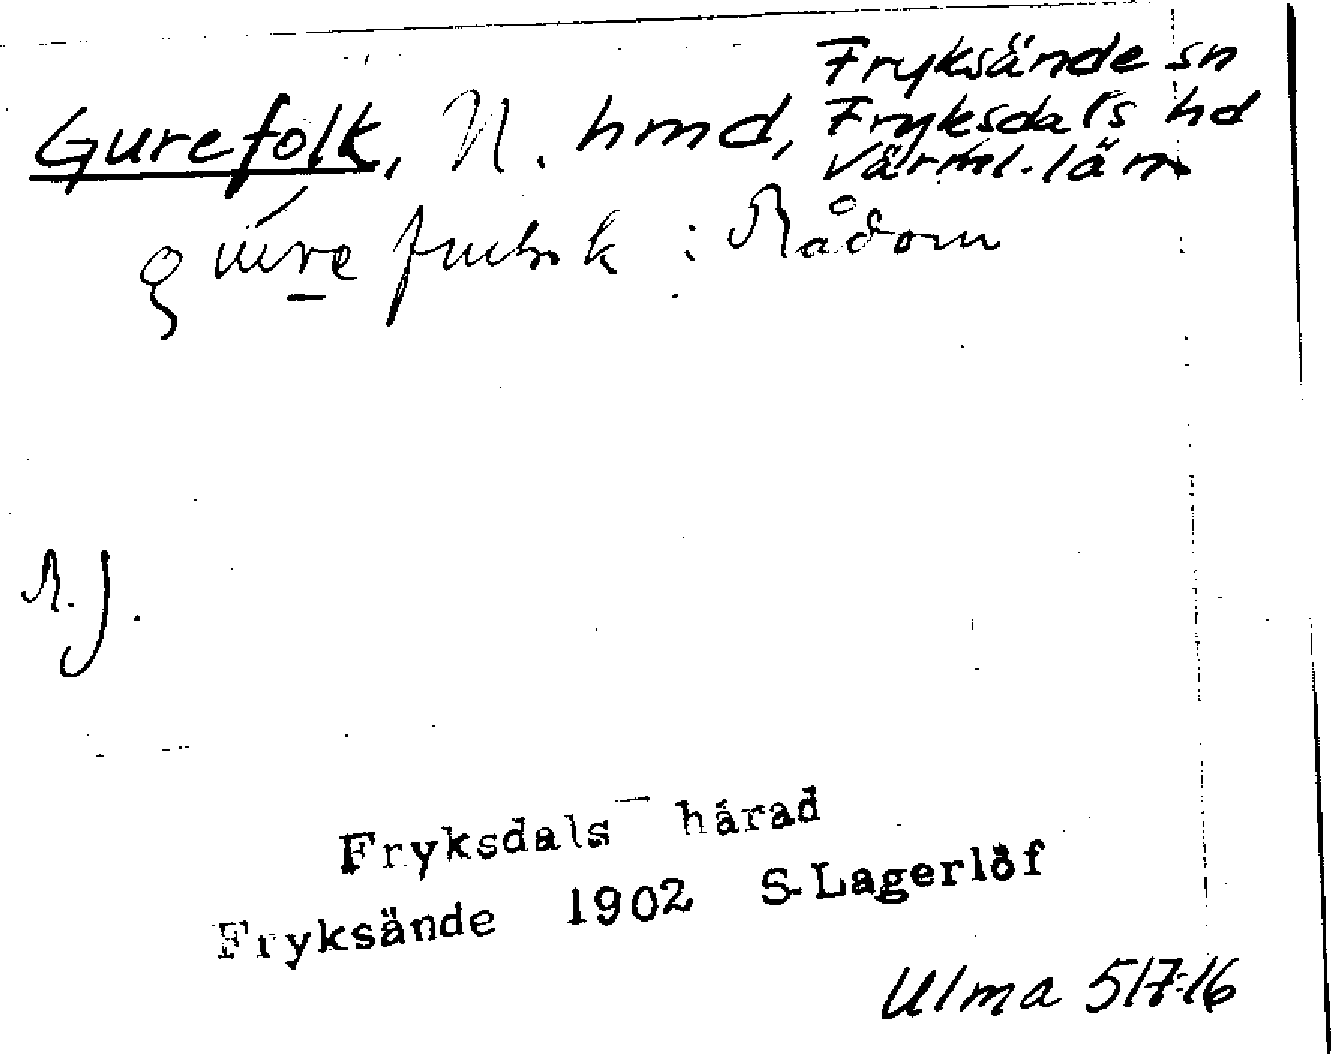 Gurefolk, N. hmd, Fryksände sn
Fryksdals hd
Värml. län
: Rådom
R.J.
Fryksdals härad
Fryksände 1902 S-Lagerlöf
Ulma 517:16